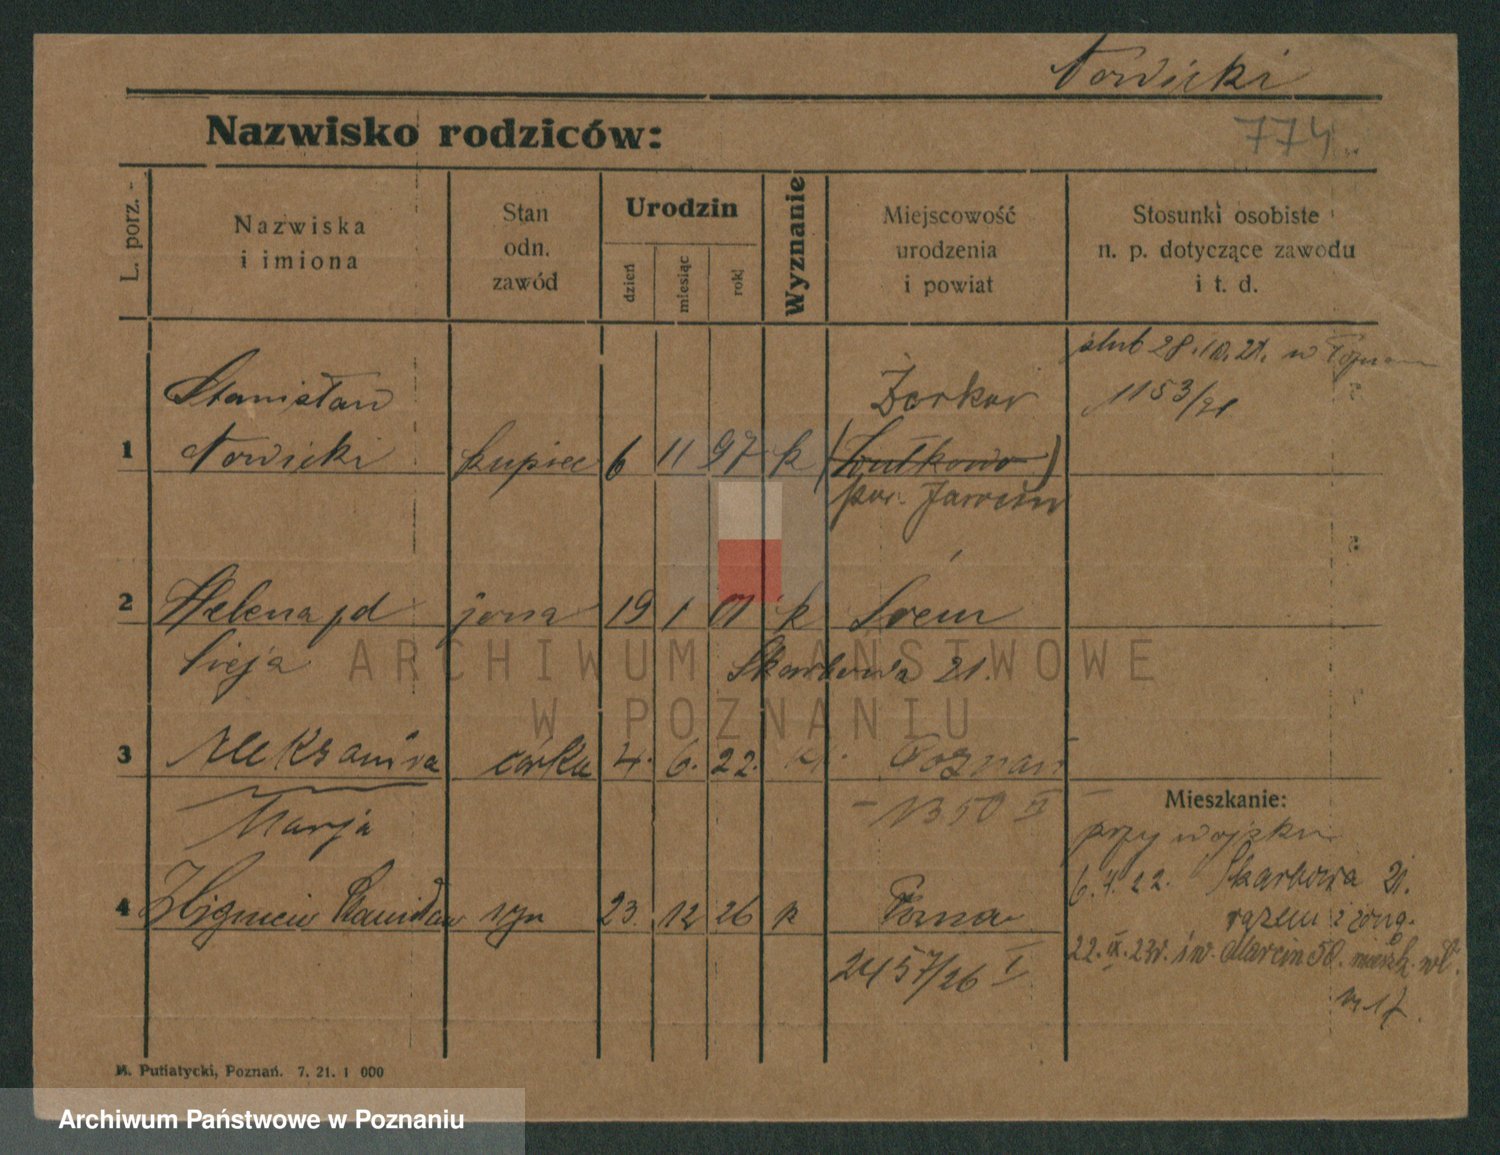 Nowicki
Nazwisko rodziców:
774
L. porz.
Nazwiska
i imiona
Stan
odn.
zawód
Urodzin
dzień
miesiąc
rok
Wyznanie
Miejscowość
urodzenia
i powiat
Stosunki osobiste
n. p. dotyczące zawodu
i t. d.
ślub 28.10.21. w
1153/21
Stanisław
Żerków
1 Nowicki kupiec 6 11 97 k
pow. Jarocin
2 Helena żona 19 1 01 k Śrem
Skarbowa 21.
3 Aleksandra córka 4. 6. 22. k. Poznań
Marja
1350 II
Mieszkanie:
przy wojsku
6.4.22. Skarbowa 21.
razem z żoną.
4 Zbigniew Stanisław syn 23 12 26 k Pozna
22.IX.23r. św. Marcin 50. mieszk. wł.
2457/26 I
nr 17.
M. Putiatycki, Poznań. 7. 21. 1 000
ARCHIWUM PAŃSTWOWE
W POZNANIU
Archiwum Państwowe w Poznaniu